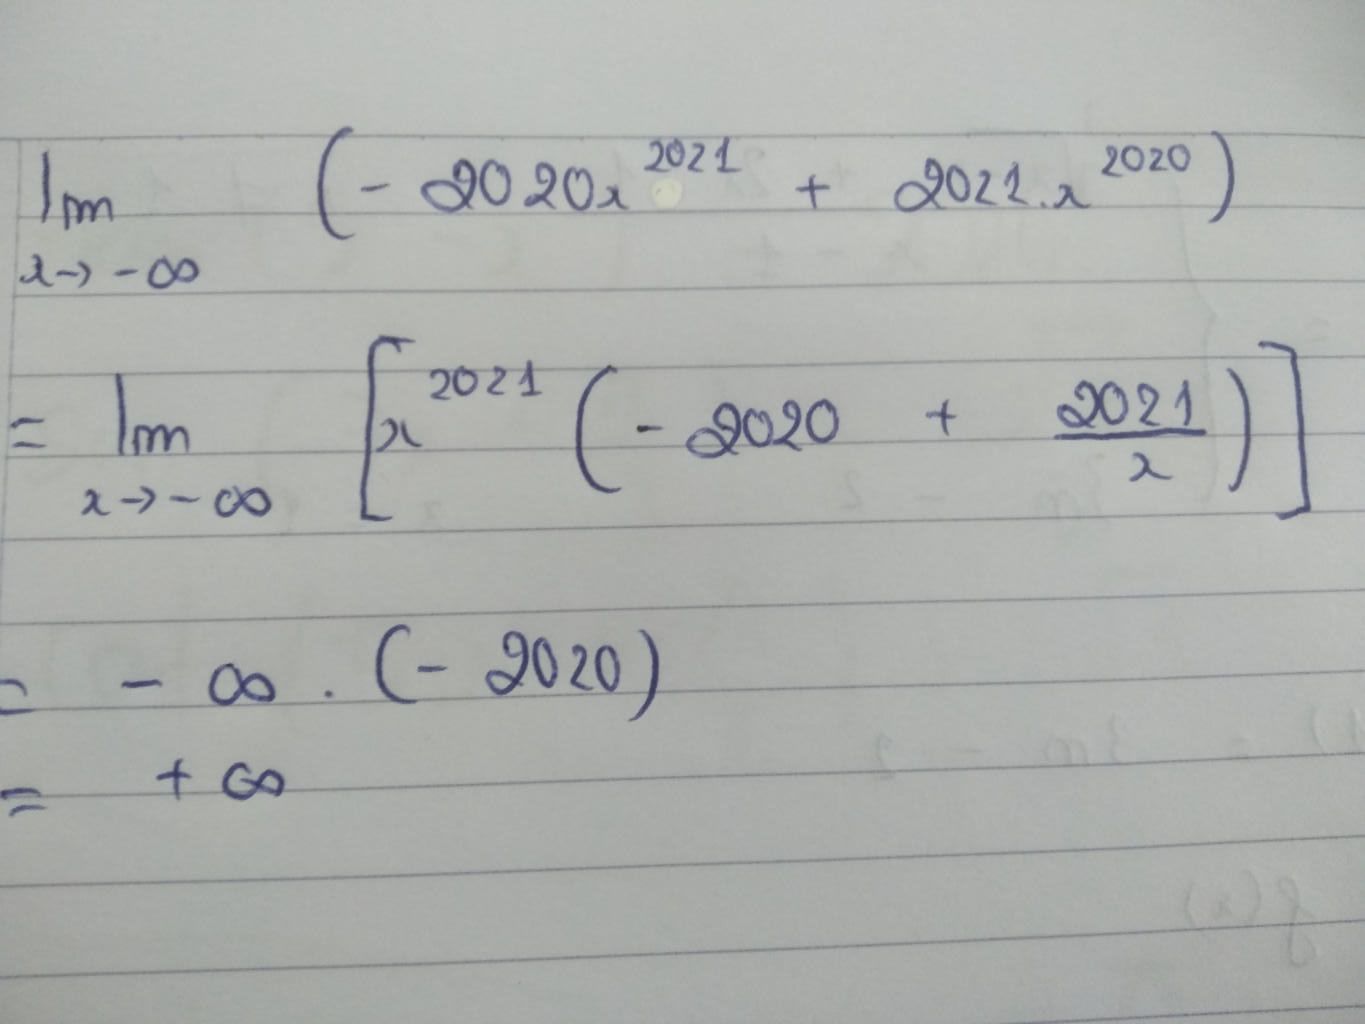 lim (-2020x^2021 + 2021.x^2020)
x→-∞
= lim [x^2021 (-2020 + 2021/x)]
x→-∞
= -∞ . (-2020)
= +∞